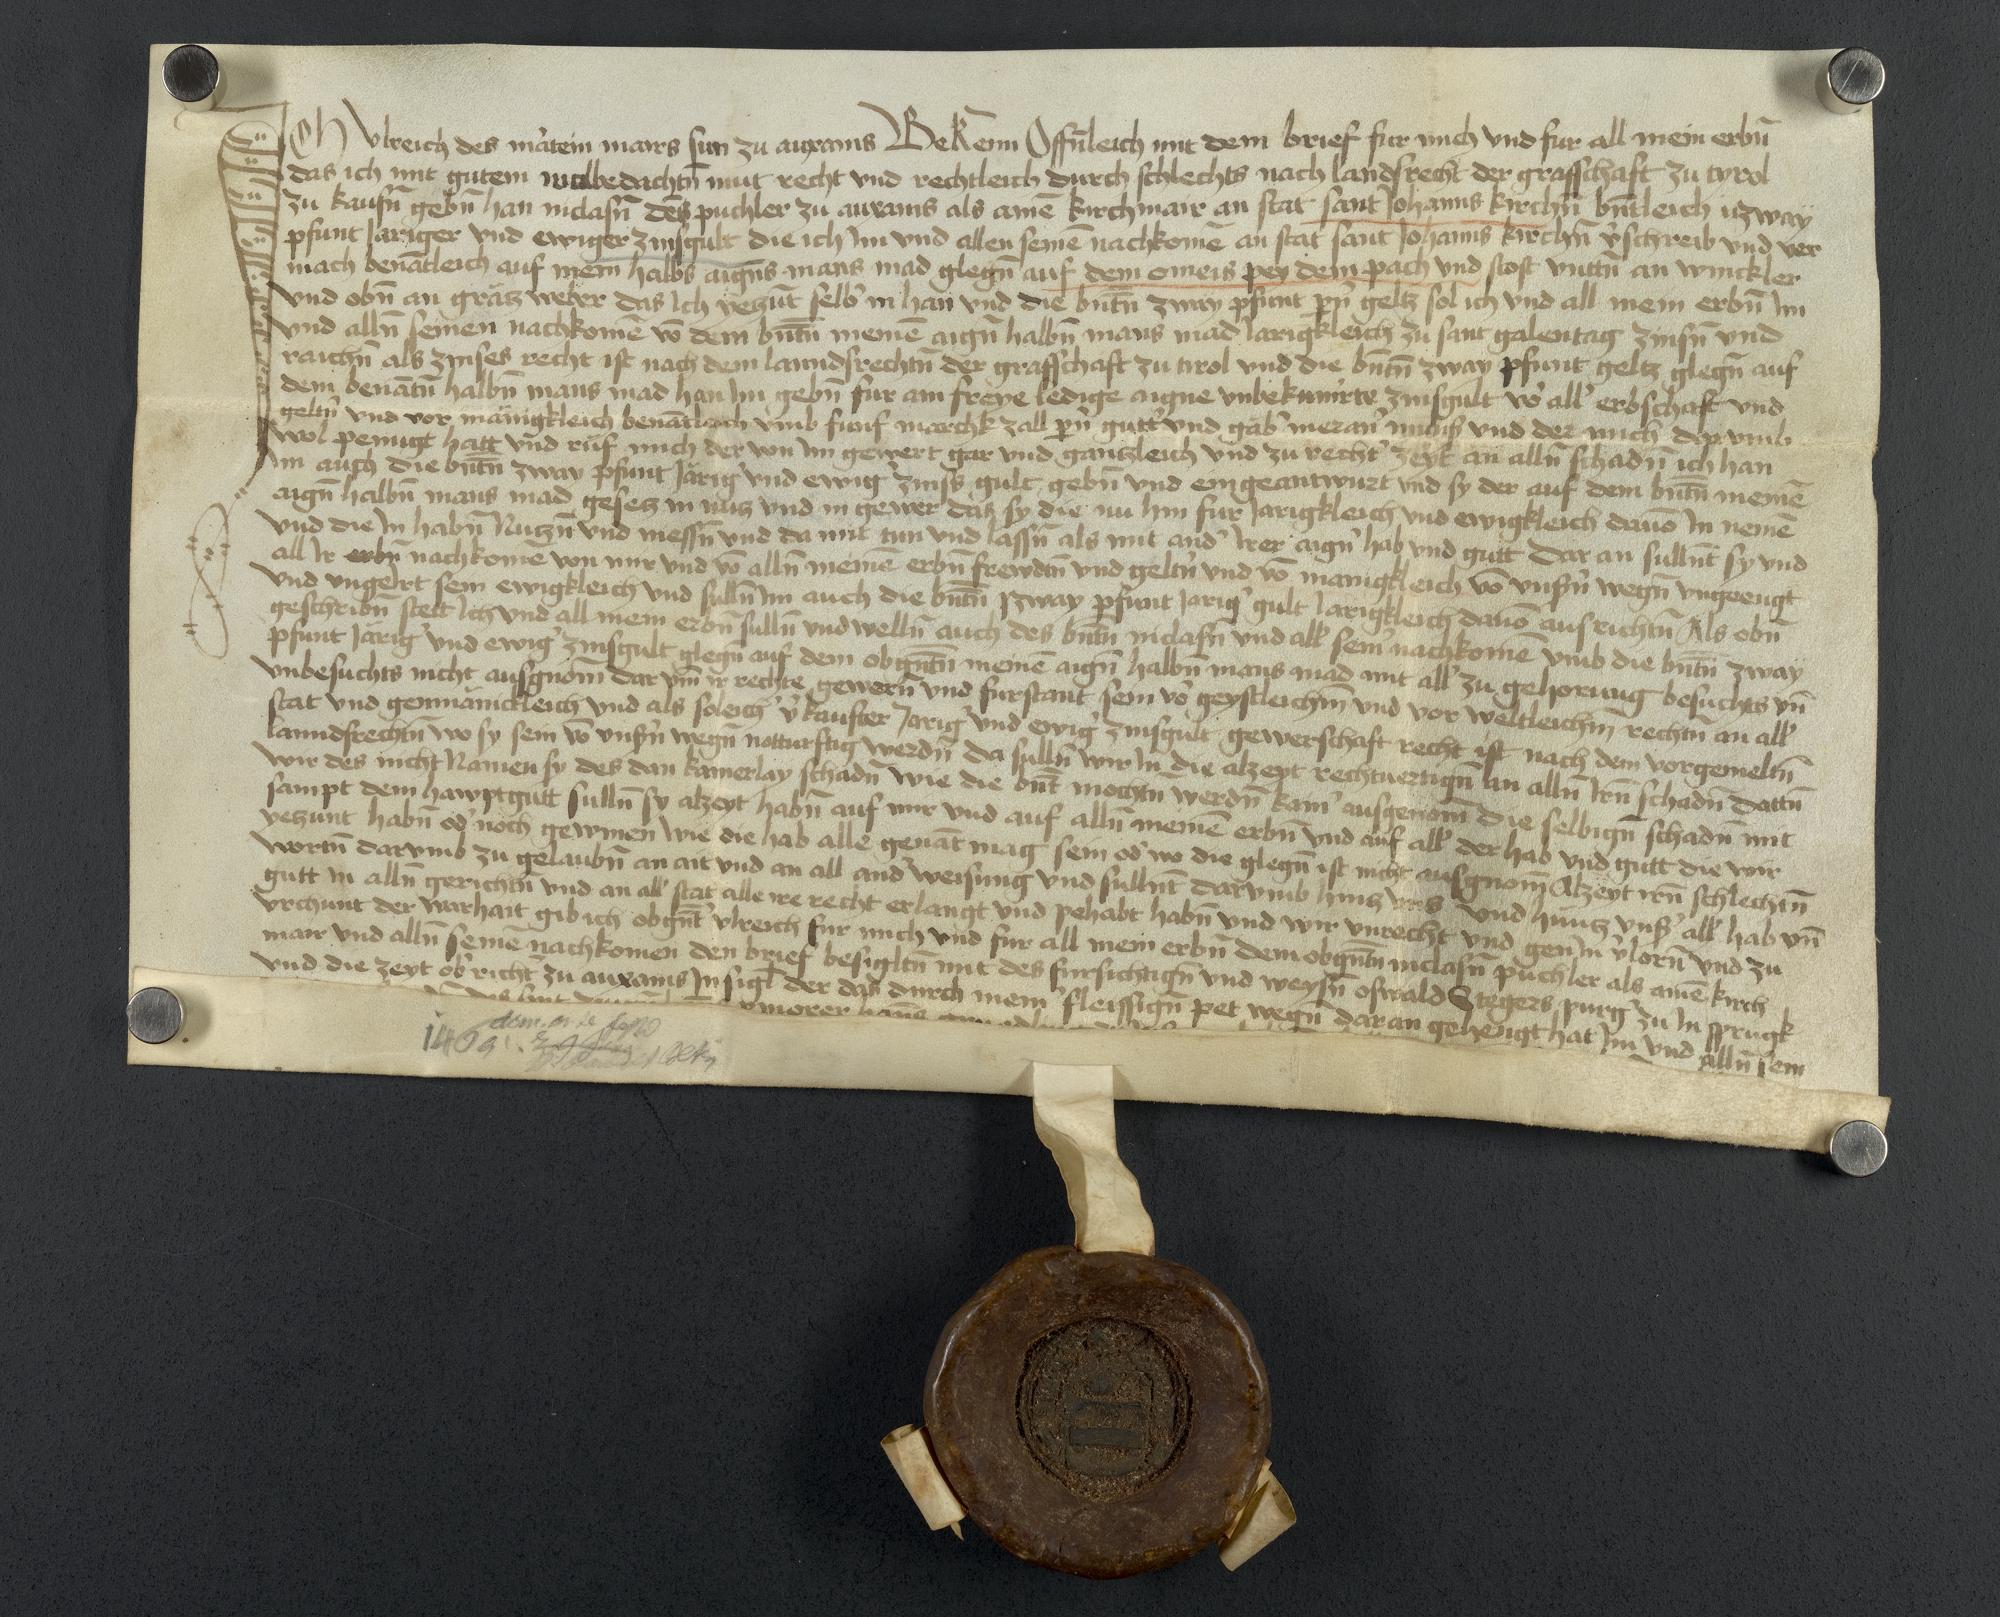 Ich Ulreich des mātein mairs sun zu auxams Bekenn Offn̄leich mit dem brief fur mich vnd fur all mein erbn̄
das ich mit gutem wolbedachtn̄ mut recht vnd rechtleich durch schlechts nach landsrecht der grafschaft zu tyrol
zu kaufn̄ gebn̄ han niclasn̄ dem puchler zu auxams als ainē kirchmair an stat sant Johanns kirchn̄ bn̄tleich zway
pfunt Jariger vnd ewiger zinsgult die ich Im vnd allen seinē nachkomē an stat sant Johanns kirchn̄ v̓schreib vnd ver
mach benātleich auf mein halbs aigns mans mad glegn̄ auf dem omeis pey dem pach vnd stost vnttn̄ an winckler
vnd obn̄ an gräts weber das Ich yetzūt selb̓ in han vnd die bn̄tn̄ zway pfunt pn̓ geltz sol ich vnd all mein erbn̄ Im
vnd alln̄ seinen nachkomē vō dem bn̄tn̄ meinē aign̄ halbn̄ mans mad Jarigkleich zu sant galentag zinsn̄ vnd
raichn̄ als zinses recht ist nach dem lanndsrechtn̄ der grafschaft zu tirol vnd die bn̄tn̄ zway pfunt geltz glegn̄ auf
dem benātn̄ halbn̄ mans mad han Im gebn̄ fur ain freye ledige aigne vnbekumrte zinsgult vō all̓ erbschaft vnd
geltn̓ vnd vor mänigkleich benātleich vmb funf marckh zall pn̓ gutt̓ vnd gäb̓ meran̓ müns vnd der mich dar vmb
wol penugt hatt vnd rüf mich der von Im gewert gar vnd gantzleich vnd zu recht̓ zeyt an alln̄ schadn̄ ich han
Im auch die bn̄tn̄ zway pfunt Järig̓ vnd ewig̓ zinss gult gebn̄ vnd eingeantwurt vnd sy der auf dem bn̄tn̄ meinē
aign̄ halbn̄ mans mad gesetz in nutz vnd in gewer das sy die nu hin fur Jarigkleich vnd ewigkleich dauō In nemē
vnd die In habn̄ Nutzn̄ vnd niessn̄ vnd da mit tun vnd lassn̄ als mit and̓ Irer aign̓ hab vnd gutt Dar an sulln̄t sy vnd
all Ir erbn̄ nachkome von mir vnd vō alln̄ meinē erbn̄ frewdtn̄ vnd geltn̓ vnd vō manigkleich vō vnsn̓ wegn̄ vngeengt
vnd vngeirt sein ewigkleich vnd sulln̄ Im auch die bn̄tn̄ zway pfunt Jarig̓ gult Jarigkleich dauō ausrichtn̄ Als obn̄
geschribn̄ stett Ich vnd all mein erbn̄ sulln̄ vnd welln̄ auch des bn̄tn̄ niclasn̄ vnd all̓ sein̓ nachkomē vmb die bn̄tn̄ zway
pfunt Järig̓ vnd ewig̓ zinsgult glegn̄ auf dem obgn̄tn̄ meinē aign̄ halbn̄ mans mad mit all̓ zu gehorung besuchts vn̄
vnbesuchts nicht ausgnom̄ dar vm̄ ir rechte gewern̄ vnd furstant sein vō geystleichm̄ vnd vor weltleichm̄ rechtn̄ an all̓
stat vnd genmänickleich vnd als soleich̓ v̓kaufter Jarig̓ vnd ewig̓ zinsgult gewerschaft recht ist nach dem vorgemeltn̄
lanndsrechtn̄ wo sy sein vō vnsn̓ wegn notturftig werdn̄ da sulln̄ wir In die alzeyt rechtuertign̄ an alln̄ Irn̄ schadn̄ dattn̄
wir des nicht Namen sy des dan kainerlay schadn̄ wie die bn̄t mochtn̄ werdn̄ kain̓ ausgenom̄ die selbign̄ schadn̄ mit
sampt dem hawptgutt sulln̄ sy alzeyt habn̄ auf mir vnd auf alln̄ meinē erbn̄ vnd auf all̓ der hab vnd gutt die wir
yetzunt habn̄ od̓ noch gewinen wie die hab alle genāt mag sein od̓ wo die glegn̄ ist nicht ausgnom̄ Alzeyt irn̄ schlechtn̄
wortn̄ darvmb zu gelaubn̄ an ait vnd an all and̓ weisung vnd sulln̄t darvmb hintz vns vnd hintz vns̓ all̓ hab vn̄
gutt in alln̄ gerichtn̄ vnd an all̓ stat alle ire recht erlangt vnd pehabt habn̄ vnd wir vnrecht vnd gen In v̓lorn̄ vnd zu
vrchunt der warhait gib ich obgn̄t̓ vlreich fur mich vnd fur all mein erbn̄ dem obgn̄tn̄ niclasn̄ puchler als ainē kirch
mair vnd alln̄ seinē nachkomen den brief besigltn̄ mit des fursichtign̄ vnd weysn̄ oswald Stegers purg̓ zu In sprugk
vnd die zeyt ob̓ richt̓ zu auxams In sigl der das durch mein̓ fleissign̄ pet wegn̄ daran gehengt hat Im vnd alln̄ sein
1469